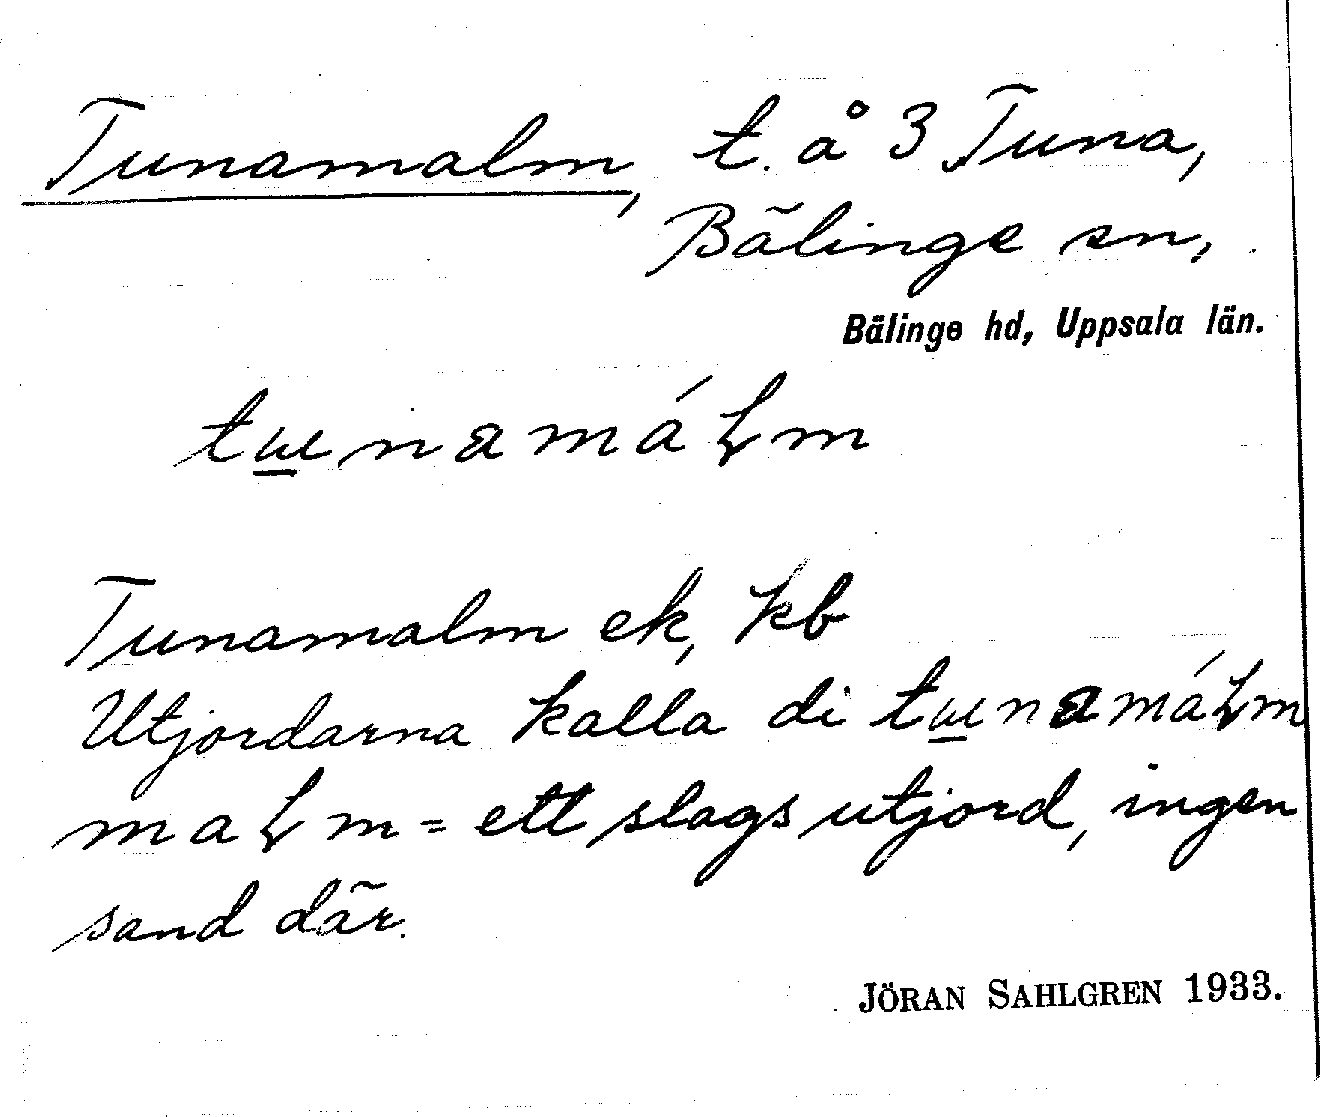 Tunamalm, t. å 3 Tuna,
Bälinge sn,
Bälinge hd, Uppsala län.
tɯnamáꞎm
Tunamalm ek, kb
Utjordarna kalla di tɯnamáꞎm
maꞎm = ett slags utjord, ingen
sand där.
JÖRAN SAHLGREN 1933.